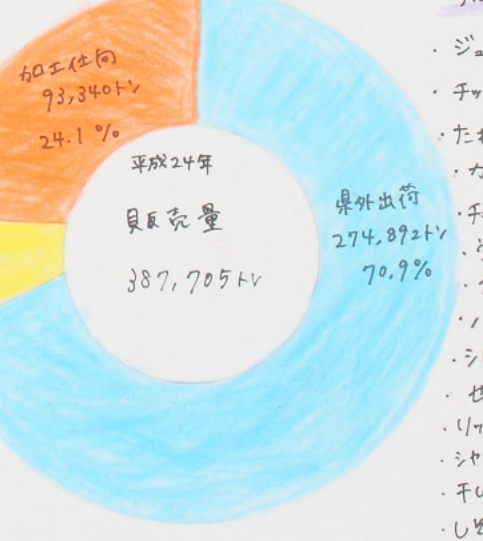 加工仕向
93,340トン
24.1%
平成24年
販売量
387,705トン
県外出荷
274,892トン
70.9%
・ジュ
・チッ
・た
・カ
・
・
・
・ハ
・シ
・せ
・リッ
・シャ
・干し
・しそ